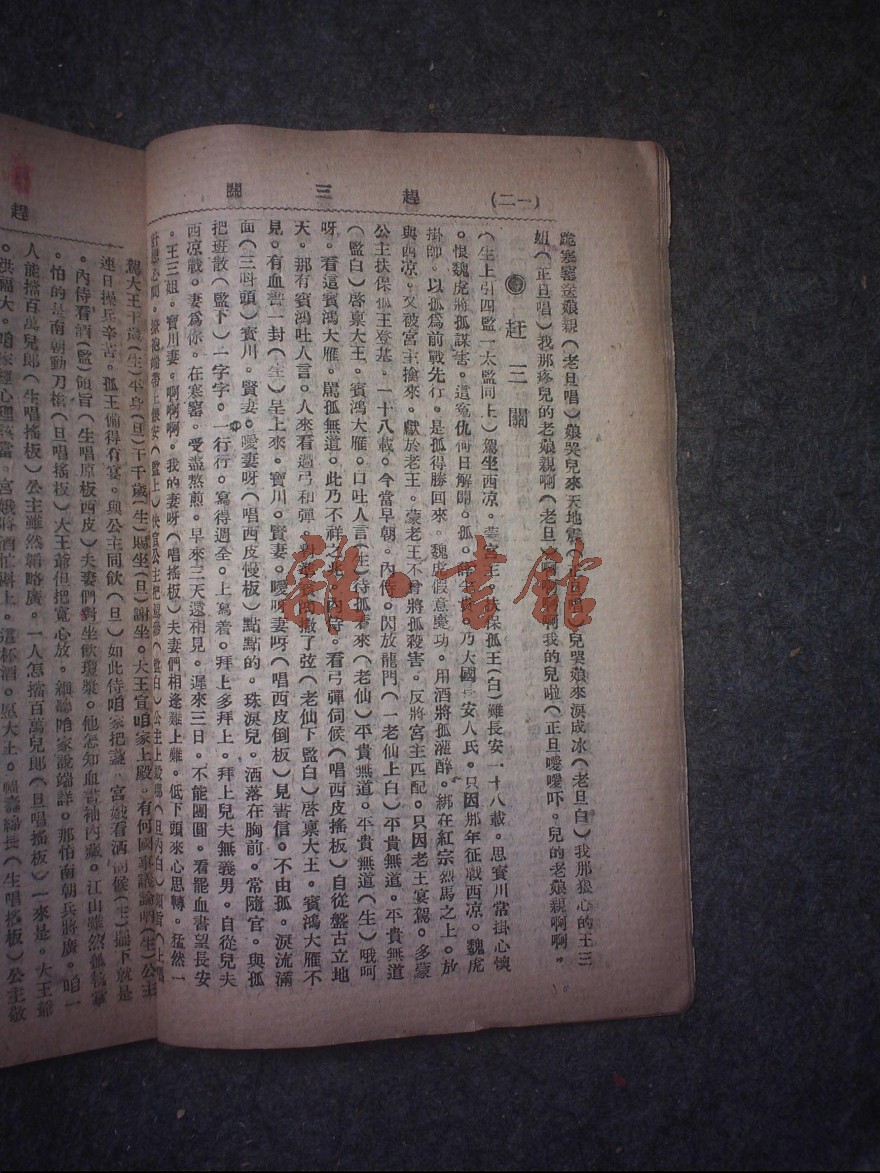 (一二) 趕三關
跪寒窰送娘親(老旦唱)娘哭兒來天地震(正旦唱)兒哭娘來淚成冰(老旦白)我那狠心的王三
姐(正旦唱)我那疼兒的老娘親啊(老旦)啊啊啊啊我的兒啦(正旦噯噯吓。兒的老娘親啊啊。
赶三關
(生上引四監一太監同上)駕坐西凉。蒙宮主。扶保孤王(白)離長安一十八載。思寶川常掛心懊
。恨魏虎將孤謀害。這寃仇何日解開。孤。薛平貴。乃大國長安人氏。只因那年征戰西凉。魏虎
掛師。以孤爲前戰先行。是孤得勝回來。魏虎假意慶功。用酒將孤灌醉。綁在紅宗烈馬之上。放
與西凉。又被宮主擒來。獻於老王。蒙老王不曾將孤殺害。反將宮主匹配。只因老王宴駕。多蒙
公主扶保孤王登基。一十八載。今當早朝。內侍。閃放龍門(一老仙上白)平貴無道。平貴無道
(監白)啓禀大王。賓鴻大雁。口吐人言(生)待孤看來(老仙)平貴無道。平貴無道(生)哦呵
呀。看這賓鴻大雁。罵孤無道。此乃不祥之兆。內侍。看弓彈伺候(唱西皮搖板)自從盤古立地
天。那有賓鴻吐人言。人來看過弓和彈。撒了弦(老仙下監白)啓禀大王。賓鴻大雁不
見。有血書一封(生)呈上來。寶川。賢妻。噯呀妻呀(唱西皮倒板)見書信。不由孤。淚流滿
面(三呌頭)寶川。賢妻。噯妻呀(唱西皮慢板)點點的。珠淚兒。洒落在胸前。常隨官。與孤
把班散(監下)一字字。一行行。寫得週全。上寫着。拜上多拜上。拜上兒夫無義男。自從兒夫
西凉戰。妻爲你。在寒窰。受盡熬煎。早來三天還相見。遲來三日。不能團圓。看罷血書望長安
。王三姐。寶川妻。啊啊啊。我的妻呀(唱搖板)夫妻們相逢難上難。低下頭來心思轉。猛然一
駕大王千歲(生)平身(旦)千千歲(生)賜坐(旦)謝坐。大王宣咱家上殿。有何國事議論哂(生)公主
連日操兵辛苦。孤王備得有宴。與公主同飲(旦)如此侍咱家把盞。宮娥看酒伺候(生)擺下就是
。內侍看酒(監)領旨(生唱原板西皮)夫妻們對坐飲瓊漿。他怎知血書袖內藏。江山雖然孤執掌
。怕的是南朝動刀槍(旦唱搖板)大王爺但把寬心放。細聽咱家說端詳。那怕南朝兵將廣。咱一
人能擋百萬兒郎(生唱搖板)公主雖然韜略廣。一人怎擋百萬兒郎(旦唱搖板)一來是。大王爺
。洪福大。
(生唱搖板)公主敬
趕
雜·書館